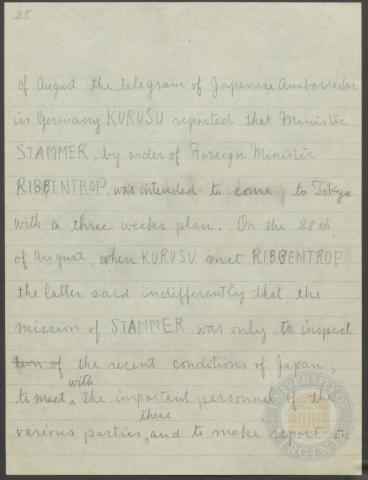 25
of August the telegram of Japanese Ambassador
in Germany KURUSU reported that Minister
STAMMER, by order of Foreign Minister
RIBBENTROP, was intended to come, to Tokyo
with a three weeks plan. On the 28th
of August, when KURUSU met RIBBENTROP
the latter said indifferently that the
mission of STAMMER was only to inspect
tion of the recent conditions of Japan,
with
to meet, the important personnel of the
there
various parties, and to make report on
UNIVERSITY OF VIRGINIA